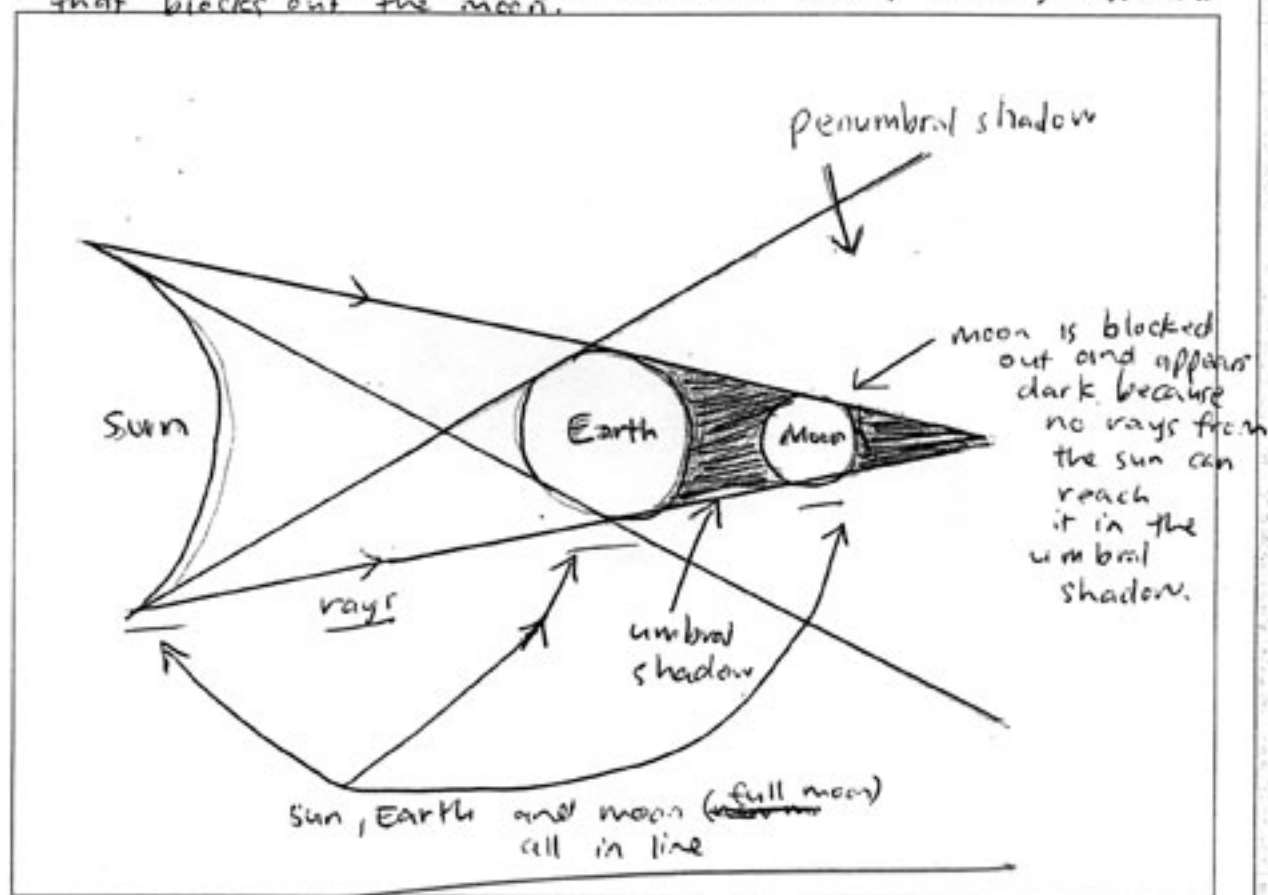 that blocks out the moon.
penumbral shadow
moon is blocked
out and appears
dark because
no rays from
the sun can
reach
it in the
umbral
shadow.
Sun
Earth
Moon
rays
umbral
shadow
sun, Earth and moon (full moon)
all in line